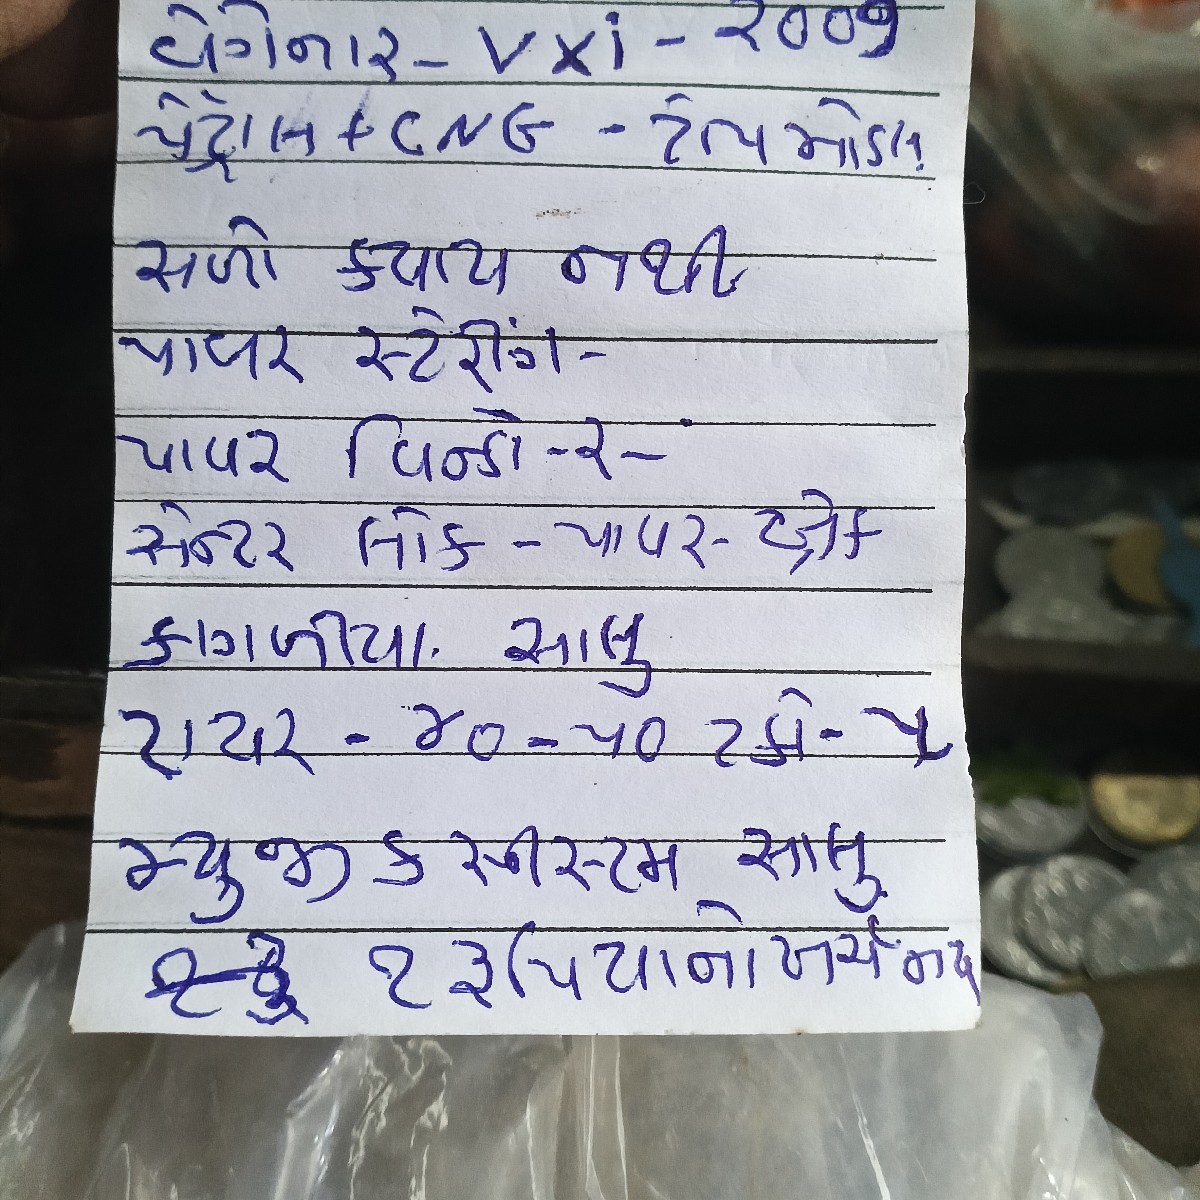 વેગેનાર - VXi - ૨૦૦૭
પેટ્રોલ + CNG - ટોપ મોડલ
સળો ક્યાય નથી
પાવર સ્ટેરીંગ -
પાવર વિન્ડો - ૨ -
સેન્ટર લોક - પાવર - બ્રેક
કાગળીયા. સાલુ
ટાયર - ૪૦ - ૫૦ ટકા -
મ્યુજીક સીસ્ટમ સાલુ
૧ રૂપિયાનો ખર્ચ નથ